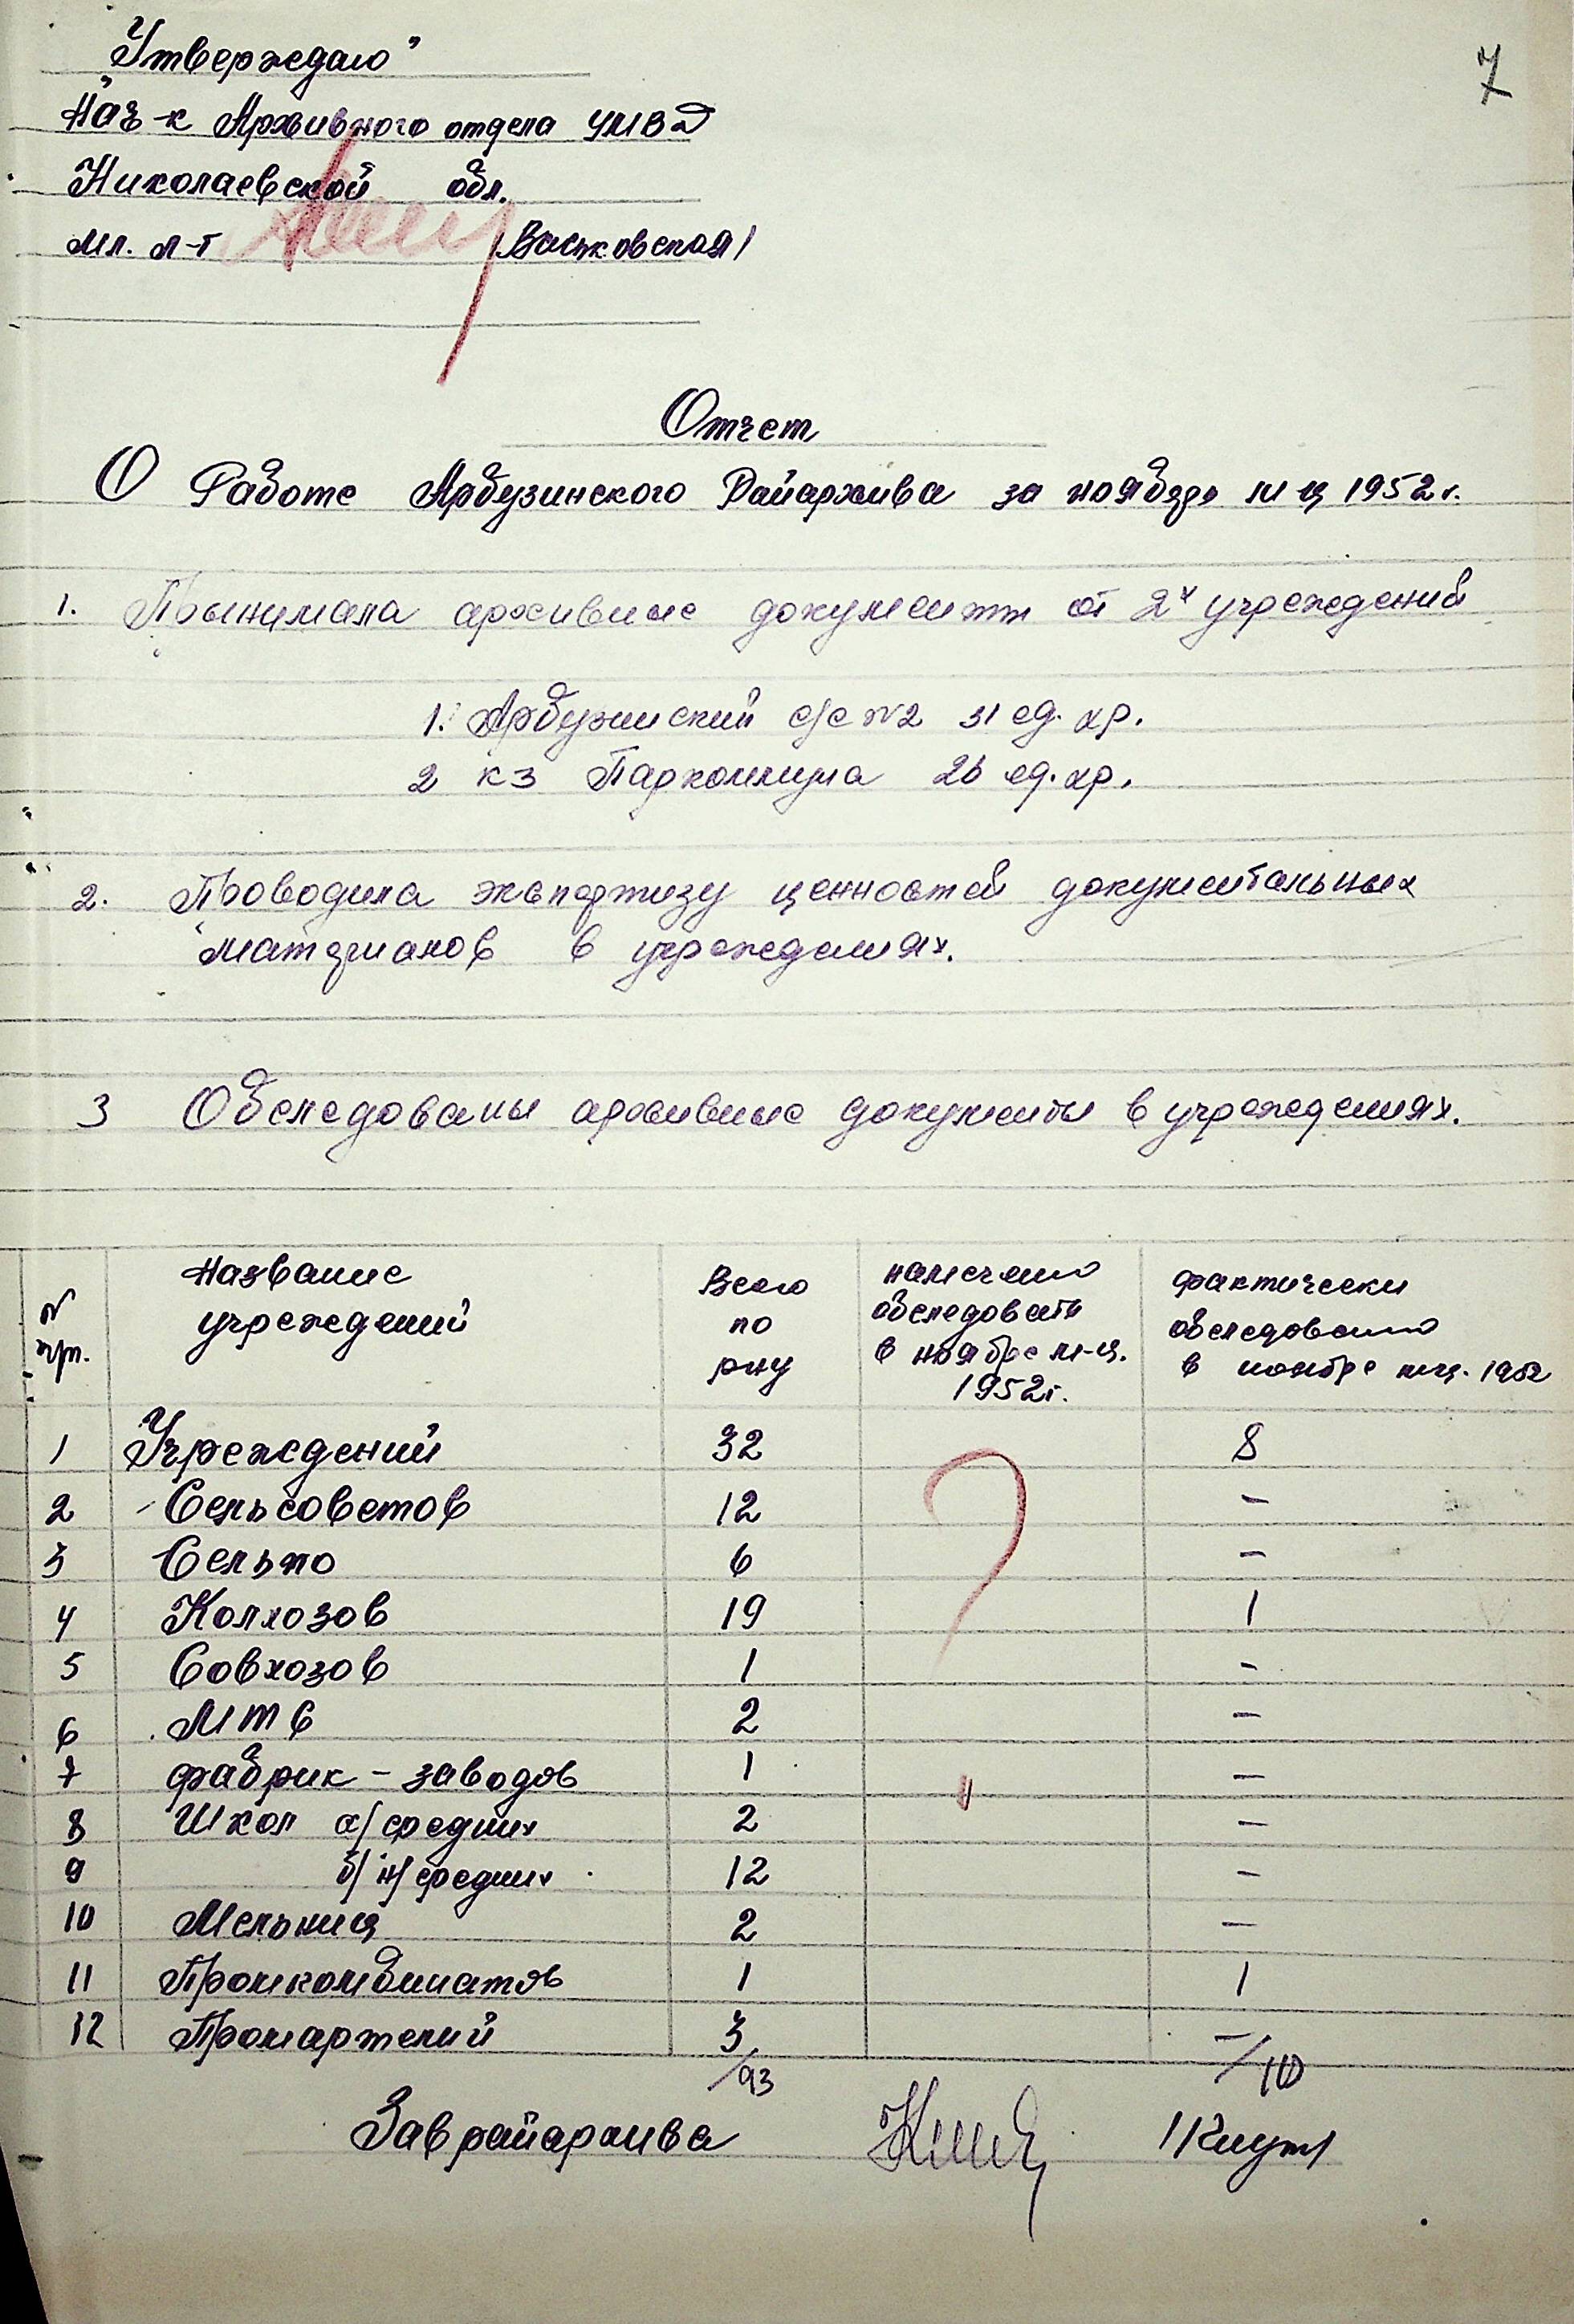 7
"Утверждаю"
Нач-к Архивного отдела УМВД
Николаевской обл.
мл. л-т /Васьковская/
Отчет
О Работе Арбузинского Райархива за ноябрь м-ц 1952 г.
1. Прынимала архивные документы от 2х учреждений
1. Арбузинский с/с №2 31 ед. хр.
2 кз Паркоммуна 26 ед. хр.
2. Проводила экспертизу ценностей документальных
материалов в учреждениях.
3 Обследованы архивные документы в учреждениях.
№ п/п. Название учреждений Всего по р-ну намечено обследовать в ноябре м-ц. 1952г. фактически обследовано в ноябре м-ц. 1952
1 Учреждений 32 8
2 Сельсоветов 12 –
3 Сельпо 6 –
4 Колхозов 19 1
5 Совхозов 1 –
6 МТС 2 –
7 фабрик – заводов 1 –
8 Школ а/ средних 2 –
9 б/ н/средних 12 –
10 Мельниц 2 –
11 Промкомбинатов 1 1
12 Промартелий 3 –
/93 /10
Зав райархива /Кнут/